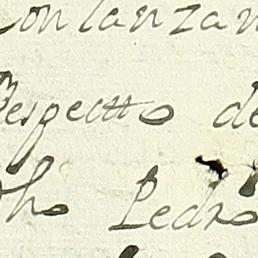 con lanzan
Respecto de
dho Pedro